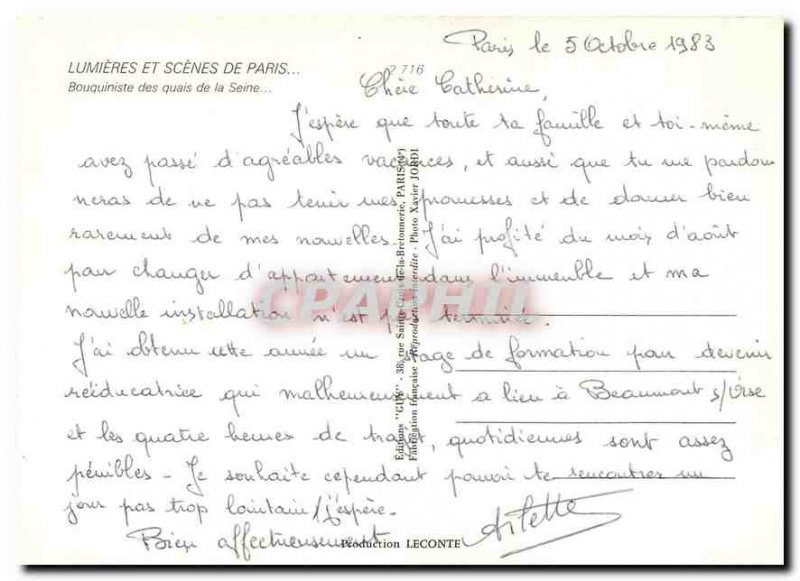 Paris le 5 Octobre 1983
LUMIÈRES ET SCÈNES DE PARIS...
Bouquiniste des quais de la Seine...
2 716
Chère Cathérine,
J'espère que toute ta famille et toi-même
avez passé d'agréables vacances, et aussi que tu me pardon
neras de ne pas tenir mes promesses et de donner bien
rarement de mes nouvelles. J'ai profité du mois d'août
pour changer d'appartement dans l'immeuble et ma
nouvelle installation n'est pas terminée.
J'ai obtenu cette année un stage de formation pour devenir
rééducatrice qui malheureusement a lieu à Beaumont s/Oise
et les quatre heures de trajet, quotidiennes sont assez
pénibles - Je souhaite cependant pouvoir te rencontrer un
jour pas trop lointain j'espère.
Bien affectueusement
Arlette
Editions "GUY" - 38, rue Sainte-Croix-de-la-Bretonnerie, PARIS (4e)
Fabrication française - Reproduction Interdite - Photo Xavier JORDI
Production LECONTE
CPAPHIL